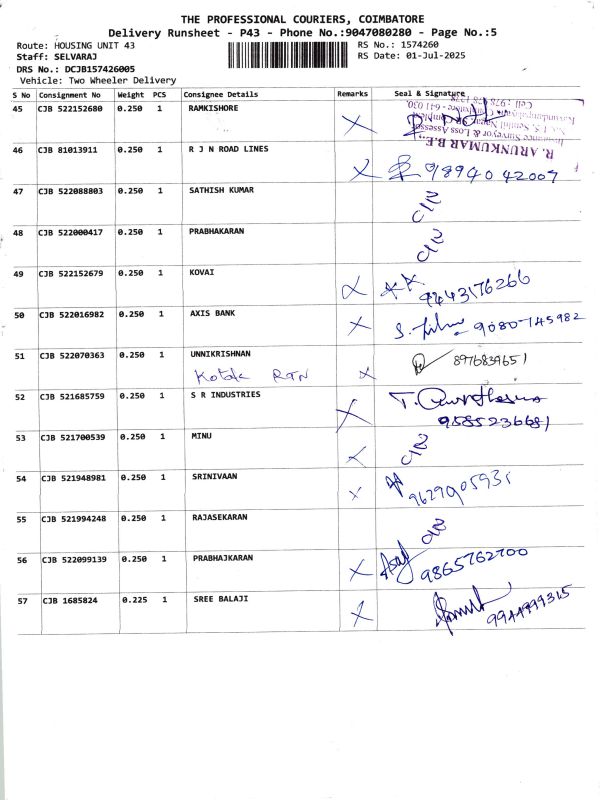 THE PROFESSIONAL COURIERS, COIMBATORE
Delivery Runsheet - P43 - Phone No.:9047080280 - Page No.:5
Route: HOUSING UNIT 43 RS No.: 1574260
Staff: SELVARAJ RS Date: 01-Jul-2025
DRS No.: DCJB157426005
Vehicle: Two Wheeler Delivery
S No Consignment No Weight PCS Consignee Details Remarks Seal & Signature
45 CJB 522152680 0.250 1 RAMKISHORE
R. ARUNKUMAR B.E.,
Insurance Surveyor & Loss Assessor
46 CJB 81013911 0.250 1 R J N ROAD LINES X 9894042007
47 CJB 522088803 0.250 1 SATHISH KUMAR
48 CJB 522000417 0.250 1 PRABHAKARAN
49 CJB 522152679 0.250 1 KOVAI X 9443176266
50 CJB 522016982 0.250 1 AXIS BANK X 9080745982
51 CJB 522070363 0.250 1 UNNIKRISHNAN
Kotak RTN X 8976839651
52 CJB 521685759 0.250 1 S R INDUSTRIES X
9585236681
53 CJB 521700539 0.250 1 MINU X
54 CJB 521948981 0.250 1 SRINIVAAN X
55 CJB 521994248 0.250 1 RAJASEKARAN
56 CJB 522099139 0.250 1 PRABHAJKARAN X 9865762700
57 CJB 1685824 0.225 1 SREE BALAJI X 9944999315